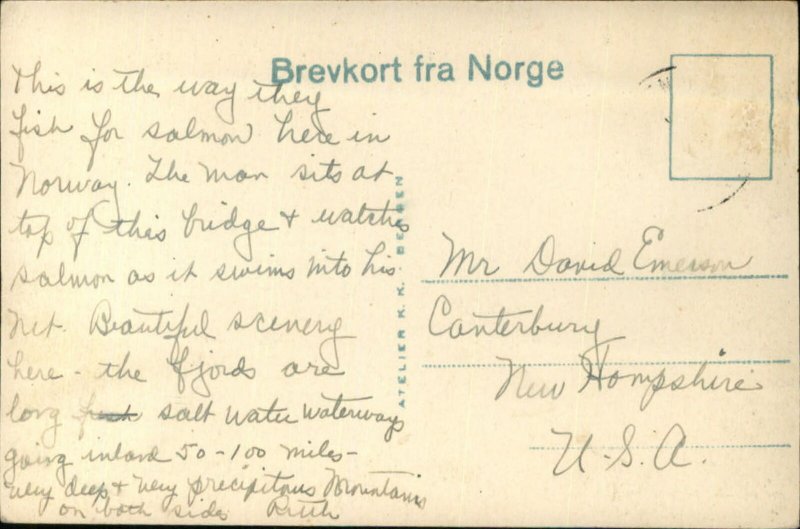 Brevkort fra Norge
This is the way they
fish for salmon here in
Norway. The man sits at
top of this bridge + watches
salmon as it swims into his
net. Beautiful scenery
here - the fjords are
long fresh salt water waterways
going inland 50-100 miles-
very deep + very precipitous Mountains
on both sides Ruth
ATELIER K. K. BERGEN
Mr David Emerson
Canterbury
New Hampshire
U.S.A.